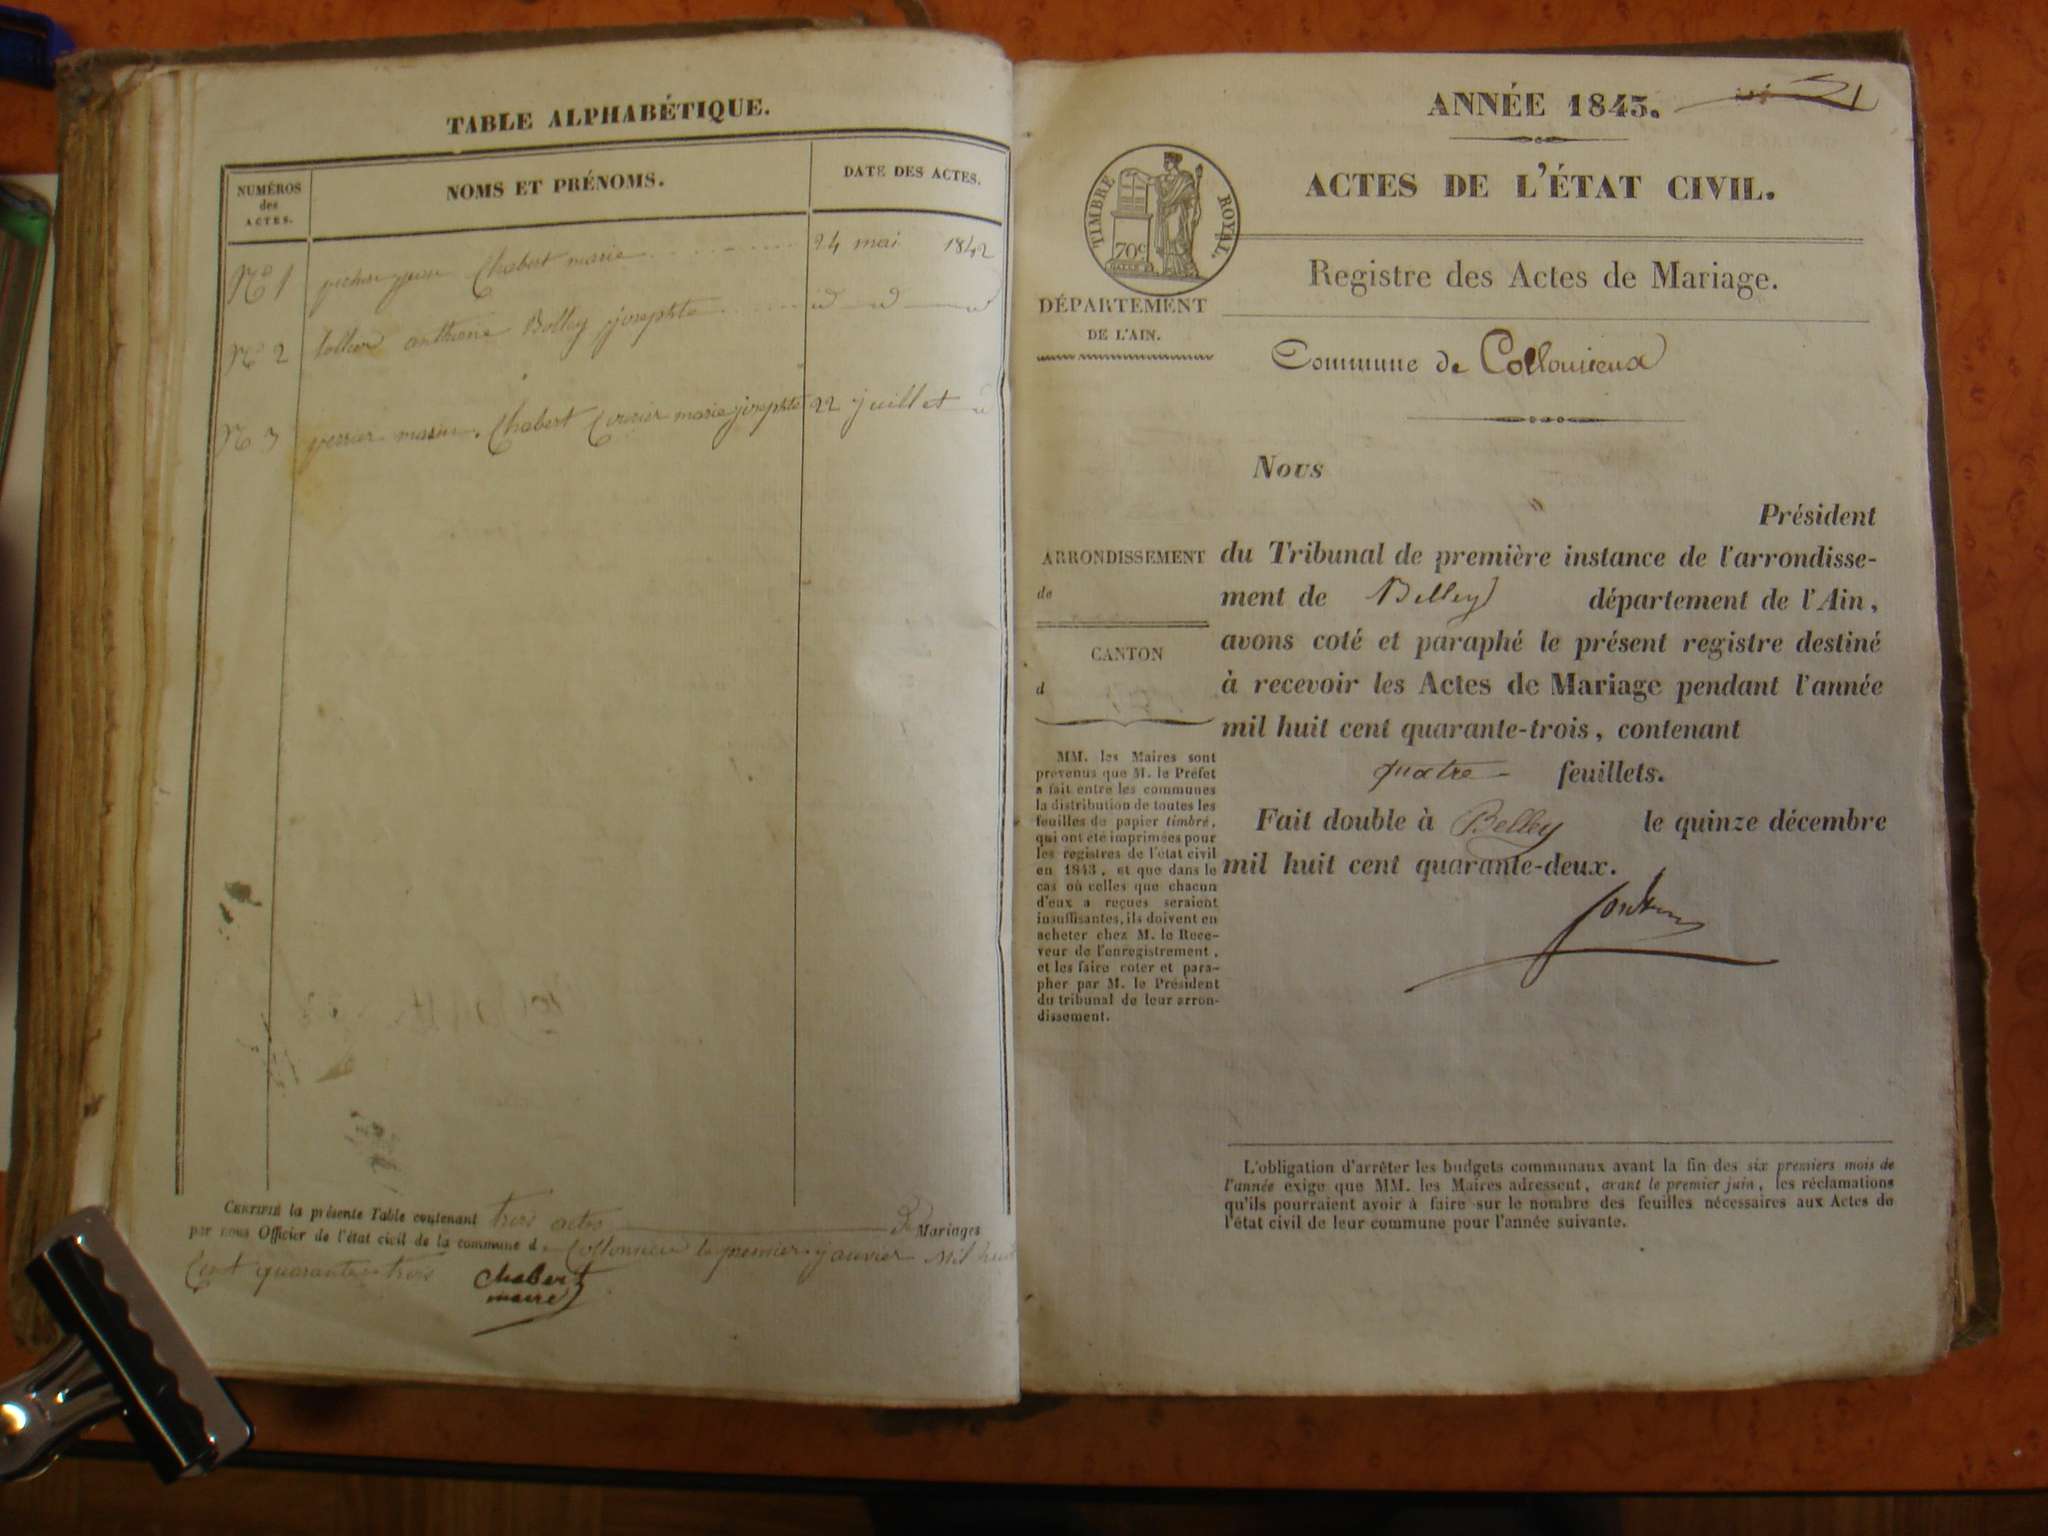 TABLE ALPHABÉTIQUE.
NUMÉROS
des
ACTES.
NOMS ET PRÉNOMS.
DATE DES ACTES.
N° 1 jean Chabert marie 24 mai 1842
N° 2 anthoine Bolley josephte id id id
N° 3 perrier marin. Chabert marie josephte 22 juillet id
CERTIFIÉ la présente Table contenant trois actes de Mariages
par nous Officier de l'état civil de la commune d. Collonieu le premier janvier Mil huit
Cent quarante trois
Chabert
maire
ANNÉE 1843.
ACTES DE L'ÉTAT CIVIL.
TIMBRE ROYAL.
70c
Registre des Actes de Mariage.
DÉPARTEMENT
DE L'AIN.
Commune de Collonieux
Nous
Président
ARRONDISSEMENT
de
CANTON
d
du Tribunal de première instance de l'arrondisse-
ment de Belley département de l'Ain,
avons coté et paraphé le présent registre destiné
à recevoir les Actes de Mariage pendant l'année
mil huit cent quarante-trois, contenant
quatre feuillets.
Fait double à Belley le quinze décembre
mil huit cent quarante-deux.
MM. les Maires sont
prévenus que M. le Préfet
a fait entre les communes
la distribution de toutes les
feuilles de papier timbré,
qui ont été imprimées pour
les registres de l'état civil
en 1843, et que dans le
cas où celles que chacun
d'eux a reçues seraient
insuffisantes, ils doivent en
acheter chez M. le Rece-
veur de l'enregistrement,
et les faire coter et para-
pher par M. le Président
du tribunal de leur arron-
dissement.
L'obligation d'arrêter les budgets communaux avant la fin des six premiers mois de
l'année exige que MM. les Maires adressent, avant le premier juin, les réclamations
qu'ils pourraient avoir à faire sur le nombre des feuilles nécessaires aux Actes de
l'état civil de leur commune pour l'année suivante.